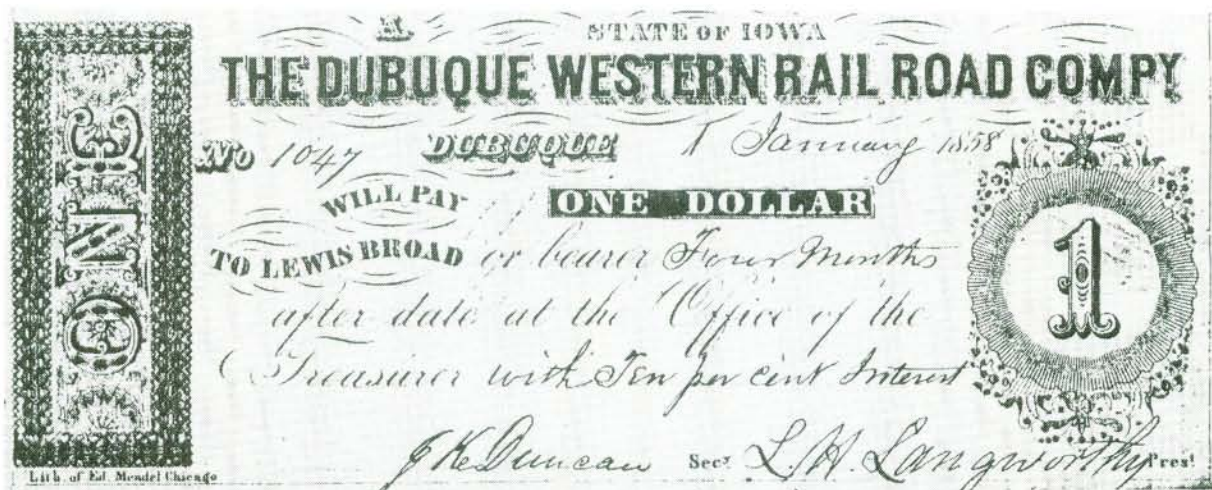 A
STATE OF IOWA
THE DUBUQUE WESTERN RAIL ROAD COMPY
No 1047 DUBUQUE 1 January 1858
WILL PAY ONE DOLLAR
TO LEWIS BROAD or bearer Four Months
after date at the Office of the
Treasurer with Ten per cent Interest
J K Duncan Secy L. H. Langworthy Prest
ONE
1
Lith. of Ed. Mendel Chicago